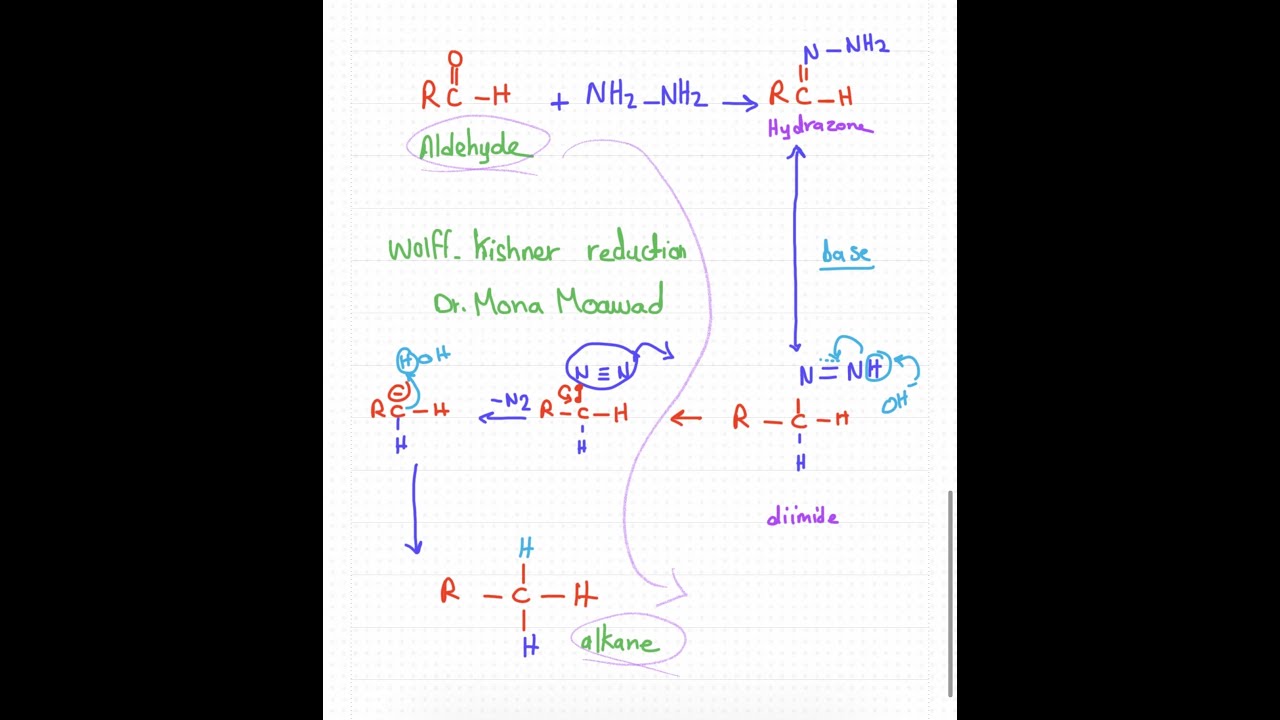 O
N-NH2
R C-H + NH2-NH2 → R C-H
Hydrazone
Aldehyde
Wolff-Kishner reduction
base
Dr. Mona Moawad
HOH
N≡N
N=NH
OH
R C-H
-N2
R-C-H
R-C-H
H
H
H
diimide
H
R-C-H
H
alkane